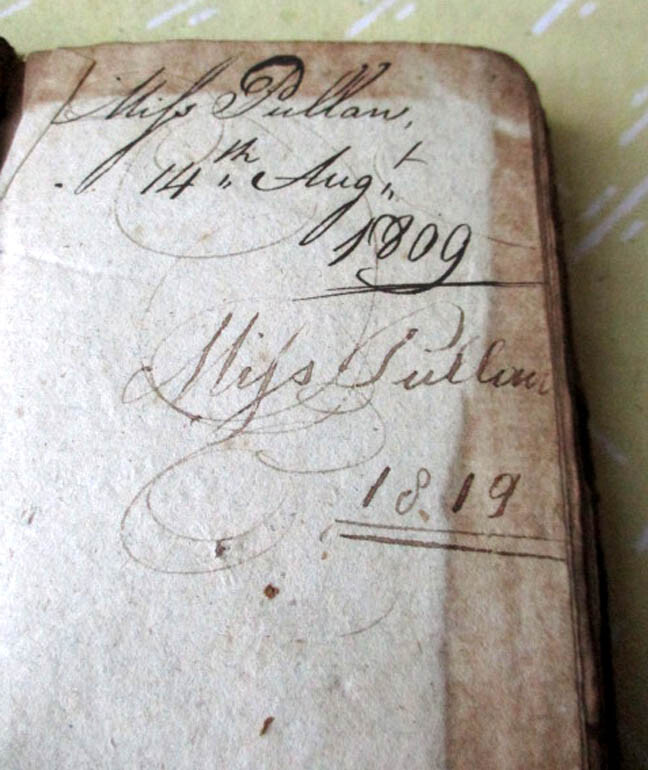 Miss Pullan,
14th Augt
1809
Miss Pullan
1819